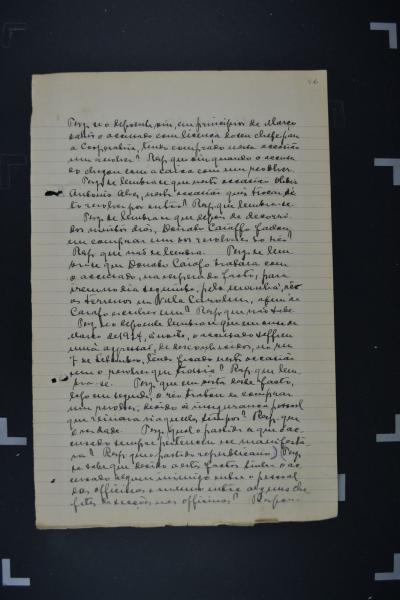 Perg. se o depoente viu, em principios de Março
o accusado com licença do seu chefe
a Cooperativa, tendo comprado nesta occasião
um revolver? Resp. que viu quando o accusa
do chegou com a caixa com um revolver.
Perg. se lembra-se que nesta occasião
Antonio Alves, nesta occasião quis trocar
o revolver por outro? Resp. que lembra-se.
Perg. se lembra-se que depois de decorri
dos muitos dias, Donato Caiaffo
um comprar um dos revolveres do réo?
Resp. que não se lembra. Perg. se lem
bra-se que Donato Caiaffo tratara com
o accusado, na vespera do facto, para
irem no dia seguinte, pela manhã,
os terrenos na Villa Carolina, afim de
Caiaffo escolher um? Resp. que não sabe.
Perg. se o depoente lembra-se que em
Março de 1917, á noite, o accusado soffreu
uma aggressão, de desconhecidos, na rua
7 de Setembro, tendo ficado nesta occasião
sem o revolver que trazia? Resp. que lem
bra-se. Perg. que em vista deste facto,
logo em seguida, o réo tratou de comprar
um revolver, devido á insegurança pessoal
que reinava n'aquelle tempo? Resp. que
é verdade. Perg. qual o partido a que o ac
cusado sempre pertenceu e se manifesta
va? Resp. que o partido republicano. Perg.
se sabe que devido a estes factos tinha o ac
cusado algum inimigo entre o pessoal
das officinas e mesmo entre alguns che
fes de secções nas officinas? Respon-